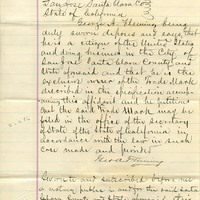 San Jose Santa Clara Co
State of California.
George A. Fleming being
duly sworn deposes and says that
he is a citizen of the United States
and doing business in the City of
San Jose Santa Clara County and
State aforesaid and that he is the
exclusive owner of the Trade Mark
described in the specification accompa
nying this affidavit and he petitions
that the said Trade Mark may be
filed in the office of the secretary
of State of the State of California in
accordance with the law in such
case made and provided.
Geo A Fleming
Sworn to and subscribed before me
a notary public in and for the said Santa
Clara County and State aforesaid this